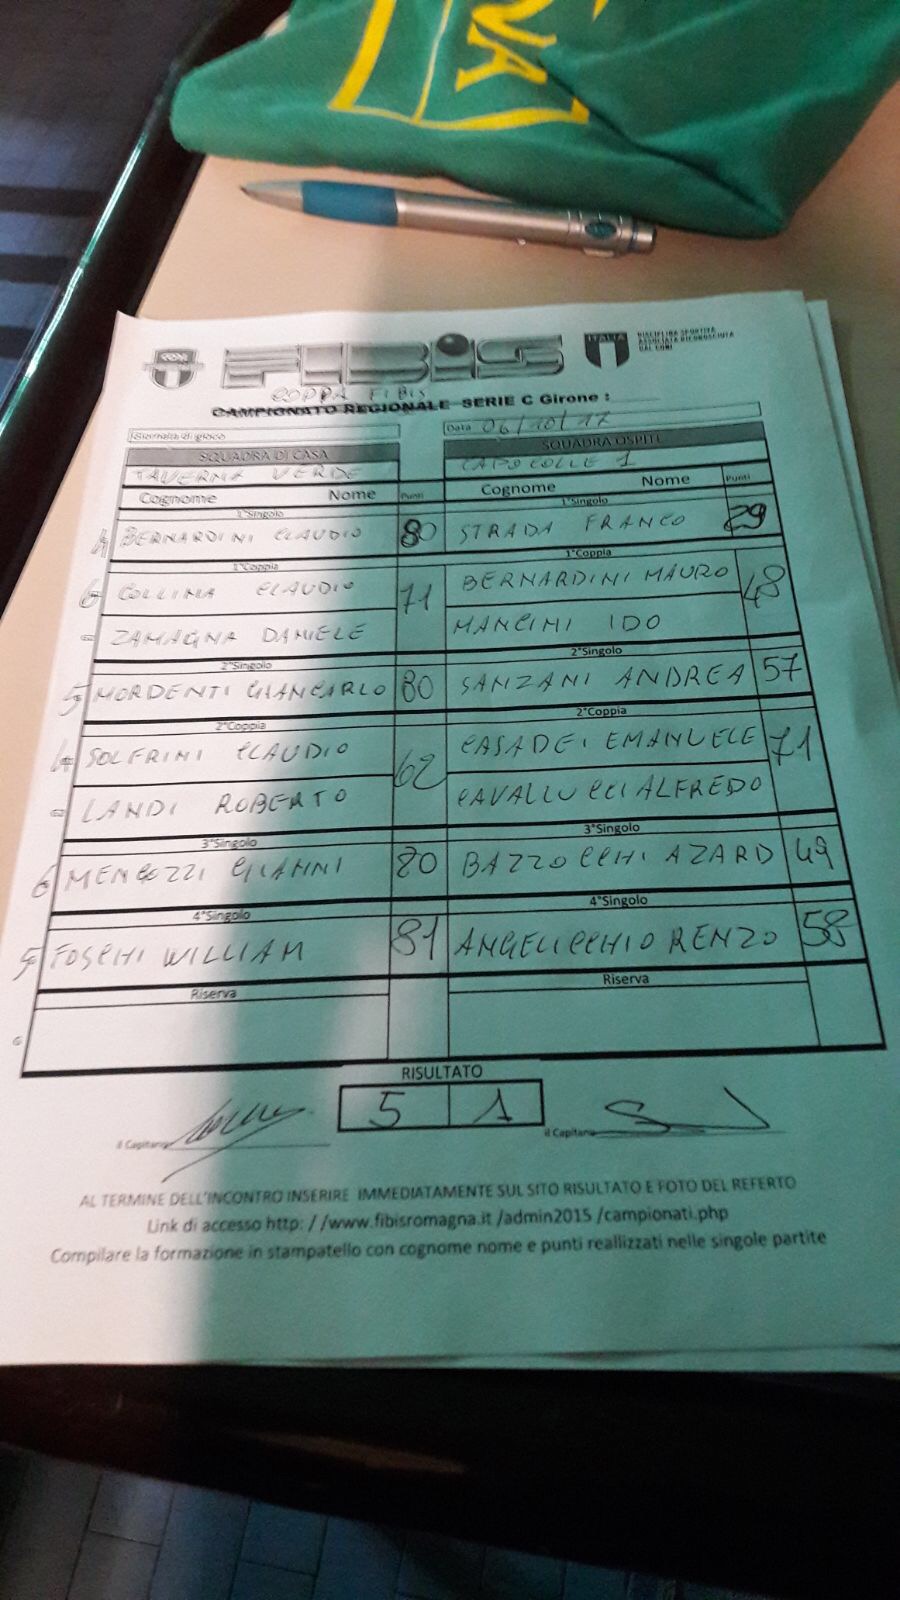 VA
FIBIS
ITALIA
DISCIPLINA SPORTIVA
ASSOCIATA RICONOSCIUTA
DAL CONI
COPPA FIBIS
CAMPIONATO REGIONALE SERIE C Girone :
Giornata di gioco
Data 06/10/17
SQUADRA DI CASA SQUADRA OSPITE
TAVERNA VERDE CAPOCOLLE 1
Cognome Nome Punti Cognome Nome Punti
1°Singolo 1°Singolo
4 BERNARDINI CLAUDIO 80 STRADA FRANCO 29
1°Coppia 1°Coppia
6 COLLINA CLAUDIO 71 BERNARDINI MAURO 48
ZAMAGNA DANIELE MANCINI IDO
2°Singolo 2°Singolo
5 MORDENTI GIANCARLO 80 SANZANI ANDREA 57
2°Coppia 2°Coppia
4 SOLFRINI CLAUDIO 62 CASADEI EMANUELE 71
LANDI ROBERTO CAVALLUCCI ALFREDO
3°Singolo 3°Singolo
6 MENGOZZI GIANNI 80 BAZZOCCHI AZARD 49
4°Singolo 4°Singolo
5 FOSCHI WILLIAM 81 ANGELICCHIO RENZO 58
Riserva Riserva
RISULTATO
5 1
il Capitano il Capitano
AL TERMINE DELL'INCONTRO INSERIRE IMMEDIATAMENTE SUL SITO RISULTATO E FOTO DEL REFERTO
Link di accesso http: / /www.fibisromagna.it /admin2015 /campionati.php
Compilare la formazione in stampatello con cognome nome e punti reallizzati nelle singole partite